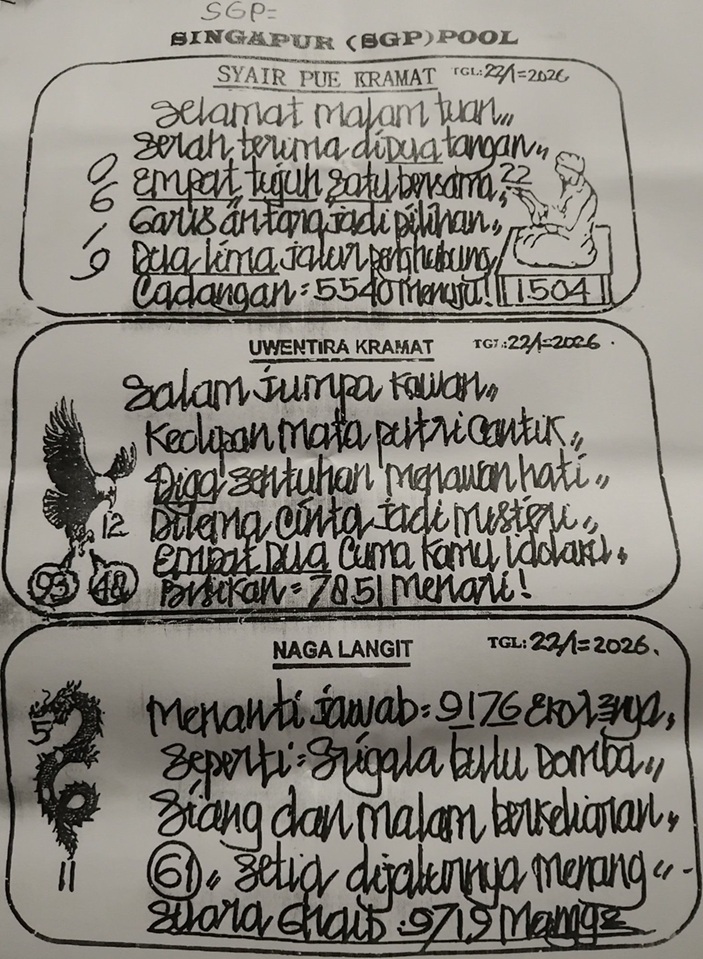 SGP=
SINGAPUR (SGP) POOL
SYAIR PUE KRAMAT TGL: 22/1=2026
Selamat malam tuan,,
Serah terima didua tangan,,
Empat tujuh satu bersama, 22
0 6 1 9
Garis antang jadi pilihan,,
Dua lima jalur penghubung,
Cadangan = 5540 menuju! 1504
UWENTIRA KRAMAT TGL: 22/1=2026
Salam jumpa kawan,,
Kedipan mata putri cantik,,
Diga sentuhan menawan hati,,
12 Dilema cinta jadi misteri,,
Empat Dua cuma kamu idolaku,
93 48 Bisikan = 7851 menari!
NAGA LANGIT TGL: 22/1=2026.
Menanti jawab: 9176 ekornya,
5
Seperti: Srigala bulu Domba,,
Siang dan malam berkeliaran,
61,, Setia dijalurnya menang,,-
11
Suara Ghaib: 9719